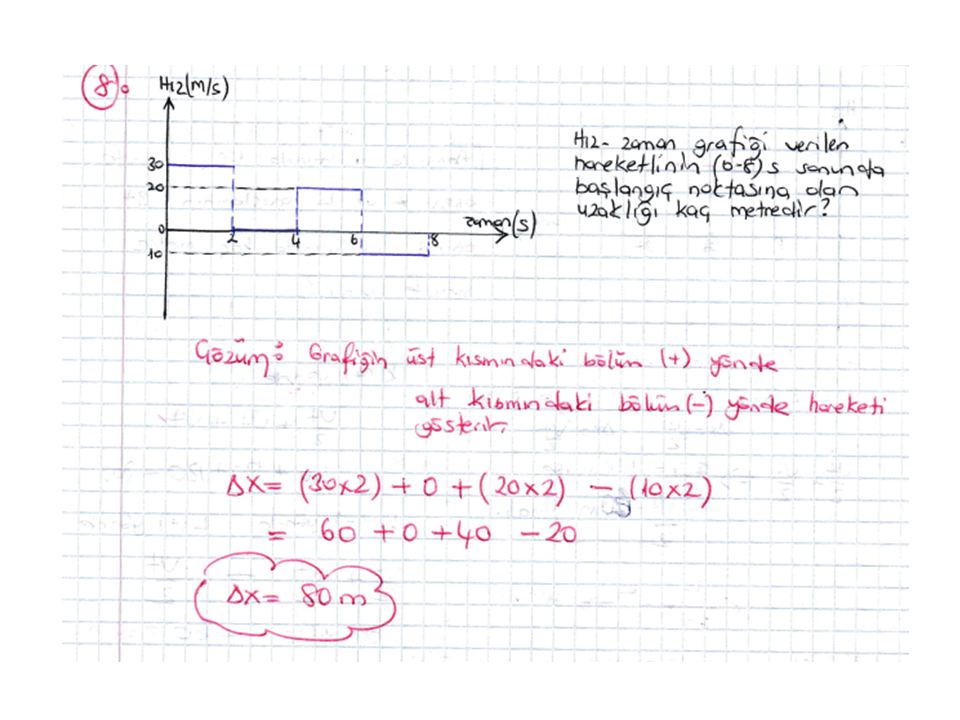 8.
Hız(m/s)
30
20
0
10
2
4
6
8
zaman(s)
Hız-zaman grafiği verilen
hareketlinin (0-8)s sonunda
başlangıç noktasına olan
uzaklığı kaç metredir?
Çözüm: Grafiğin üst kısmındaki bölüm (+) yönde
alt kısmındaki bölüm (-) yönde hareketi
gösterir.
Δx= (30x2) + 0 + (20x2) - (10x2)
= 60 + 0 + 40 - 20
Δx= 80 m